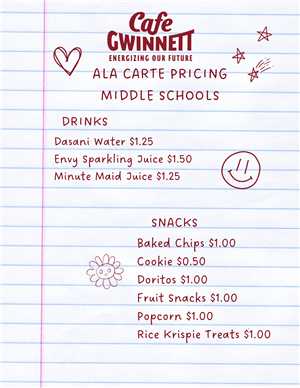 Cafe
GWINNETT
ENERGIZING OUR FUTURE
ALA CARTE PRICING
MIDDLE SCHOOLS
DRINKS
Dasani Water $1.25
Envy Sparkling Juice $1.50
Minute Maid Juice $1.25
SNACKS
Baked Chips $1.00
Cookie $0.50
Doritos $1.00
Fruit Snacks $1.00
Popcorn $1.00
Rice Krispie Treats $1.00